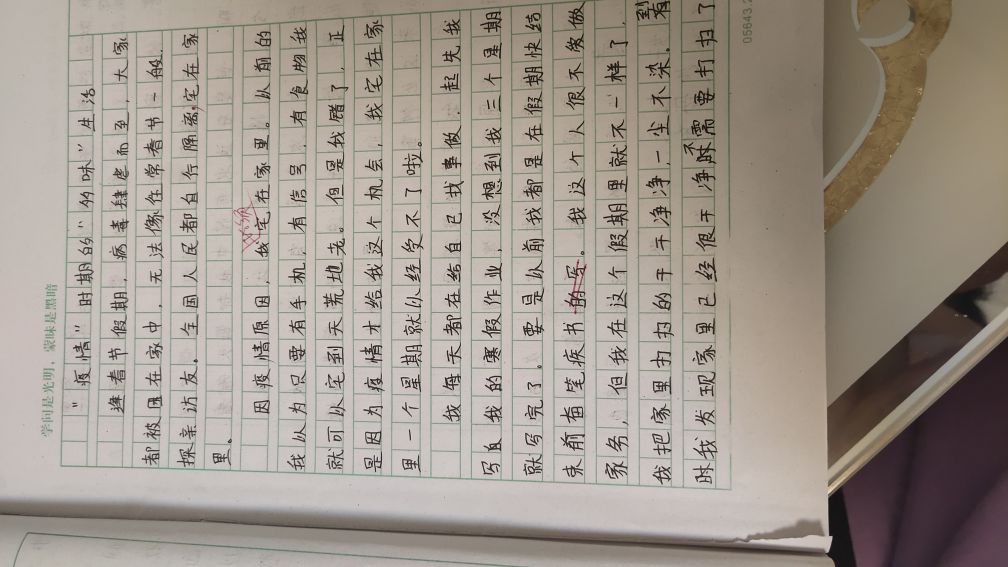 学问是光明，蒙昧是黑暗
"疫情"时期的"多味"生活
逢春节假期，病毒肆虐而至，大家
都被困在家中，无法像往常春节一般
探亲访友。全国人民都自行隔离，宅在家
里。
因疫情原因，我宅在家里。从前的
我以为只要有手机，有信号，有食物我
就可以宅到天荒地老。但是我错了，正
是因为疫情才给我这个机会，我宅在家
里一个星期就以经受不了啦。
我每天都在给自己找事做，起先我
写我的寒假作业，没想到我三个星期
就写完了。要是以前我都是在假期快结
束前奋笔疾书的写。我这个人很不爱做
家务，但我在这个假期里就不一样了，
我把家里打扫的干干净净，一尘不染。到有
时我发现家里已经很干净不需要打扫了
05643.2